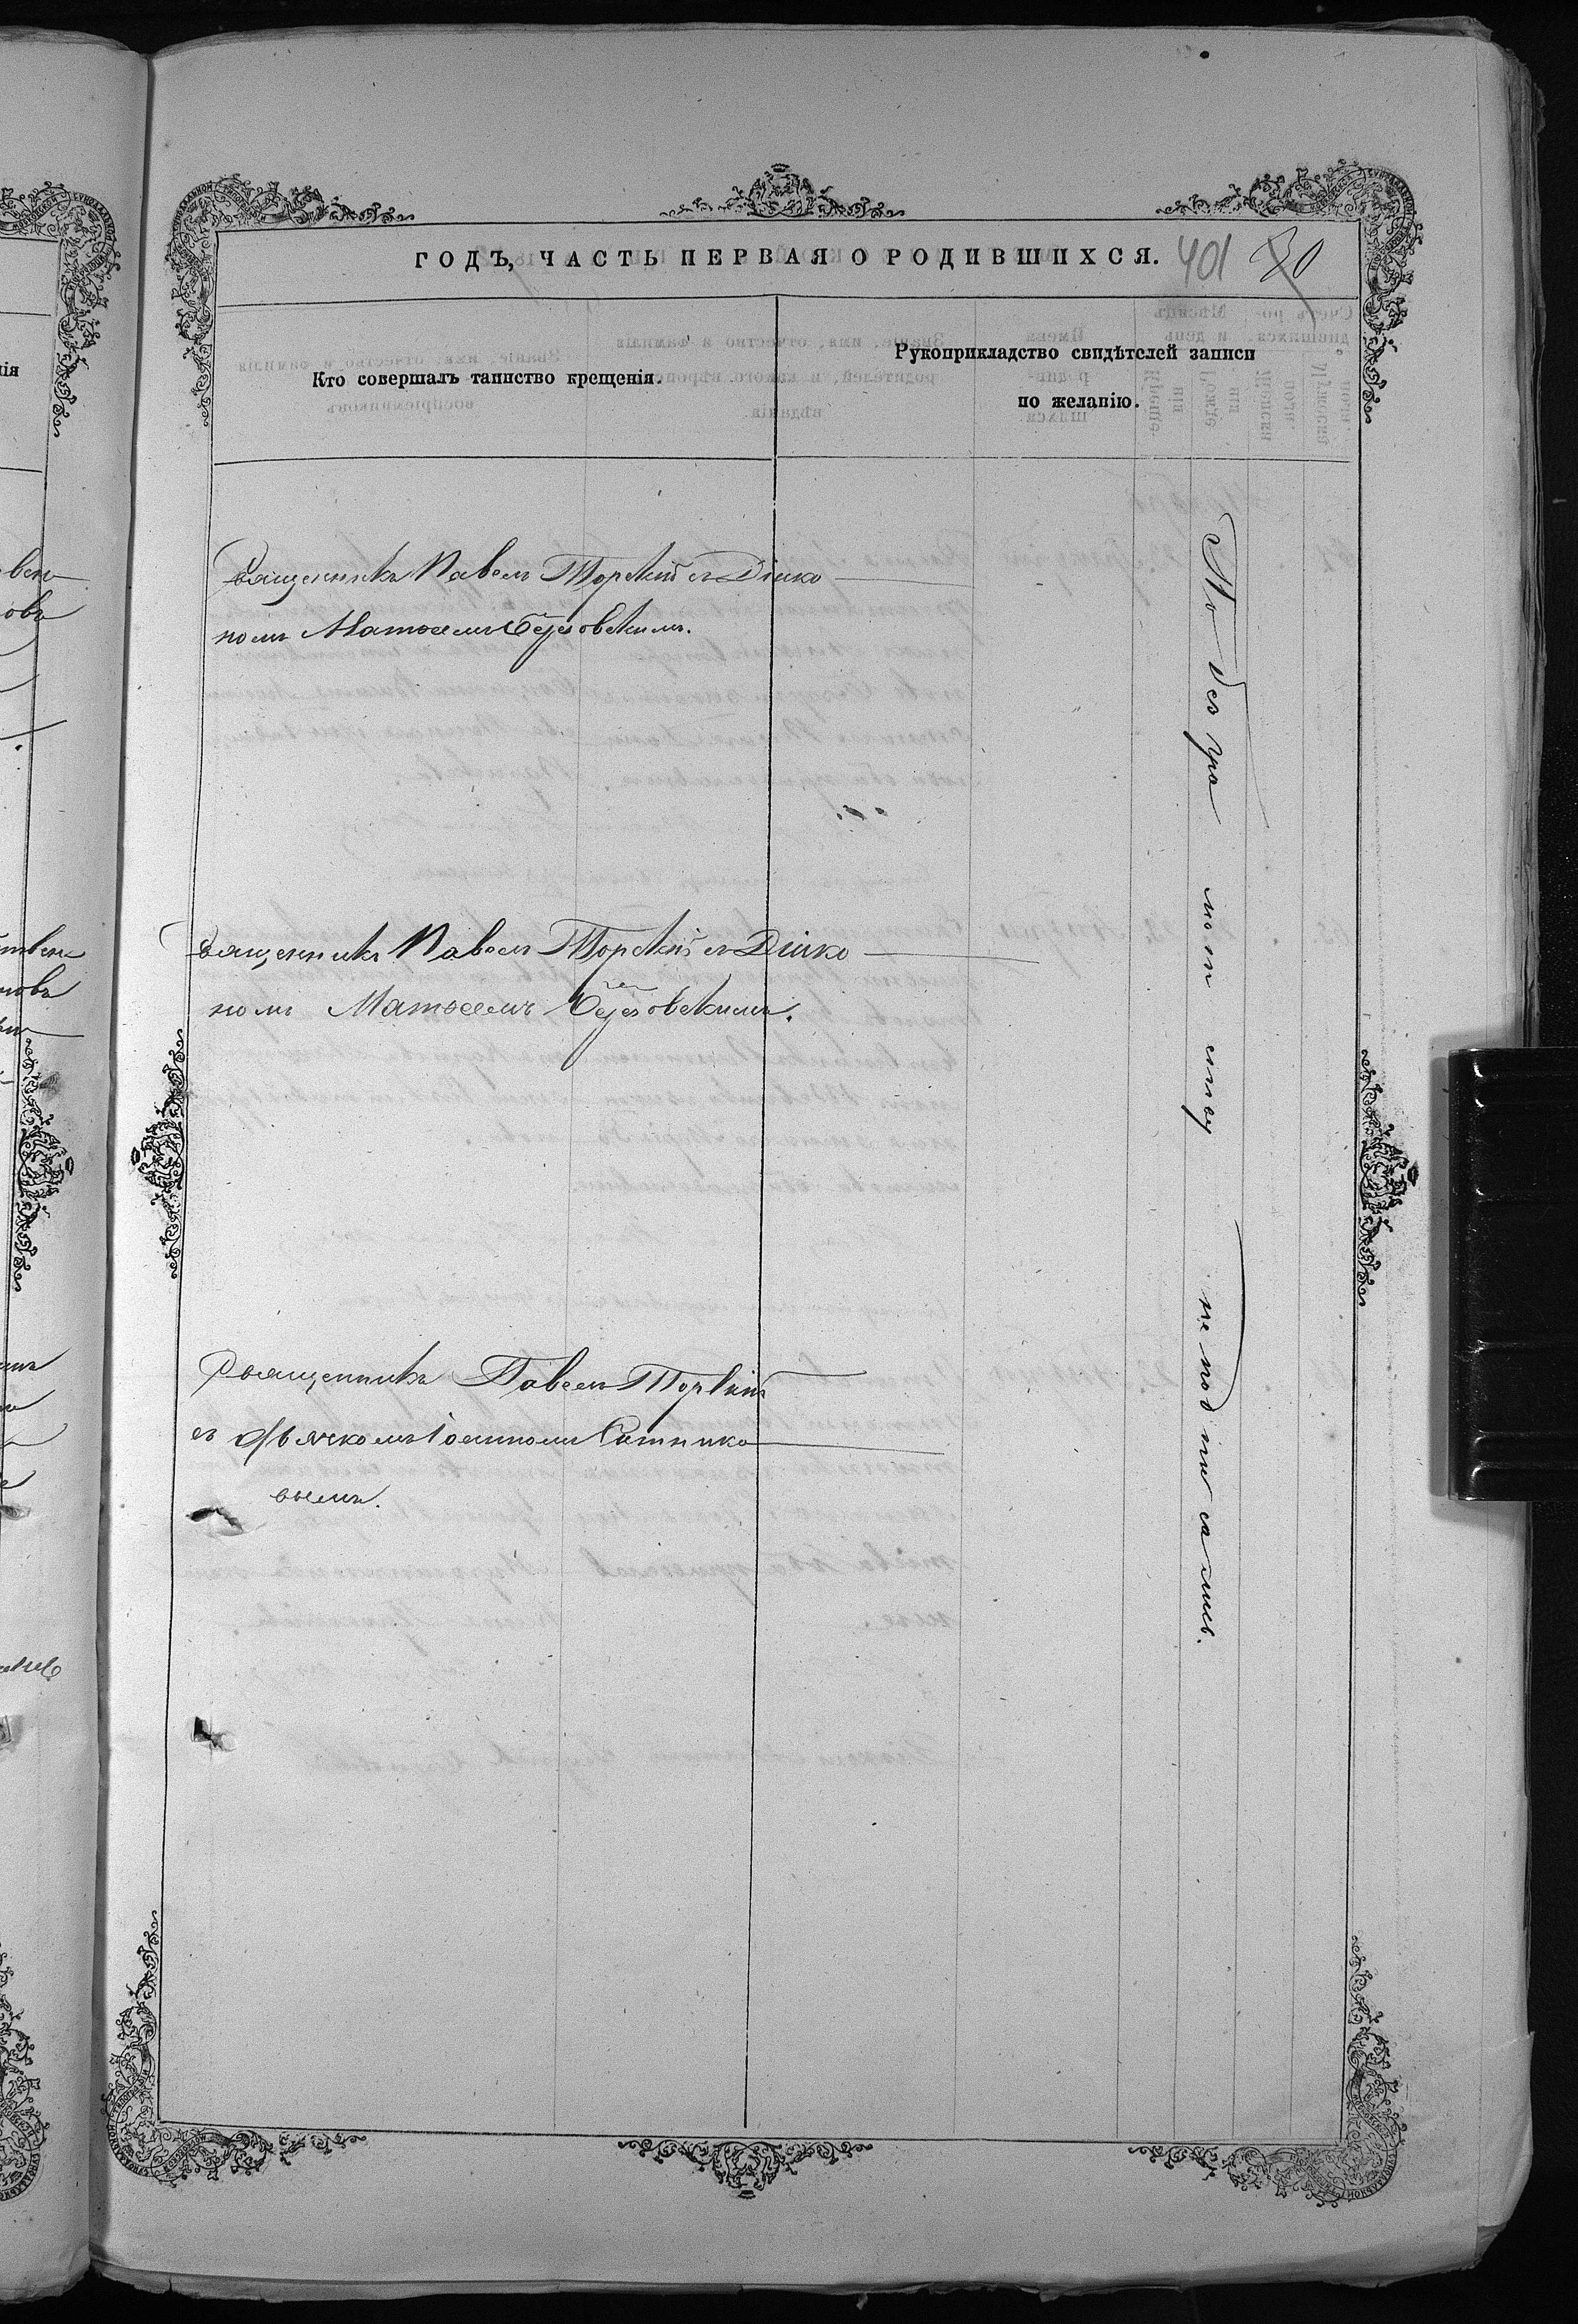 ГОДЪ, ЧАСТЬ ПЕРВАЯ О РОДИВШИХСЯ. 401 30
Кто совершалъ таинство крещенія.
Рукоприкладство свидѣтелей записи
по желанію.
Священникъ Павелъ Торскій съ Діако
номъ Матѳеемъ Березовскимъ.
Священникъ Павелъ Торскій съ Діако
номъ Матѳеемъ Березовскимъ.
Священникъ Павелъ Торскій
съ дьячкомъ Іоанномъ Ситнико
вымъ.
По безграмотству не подписались.